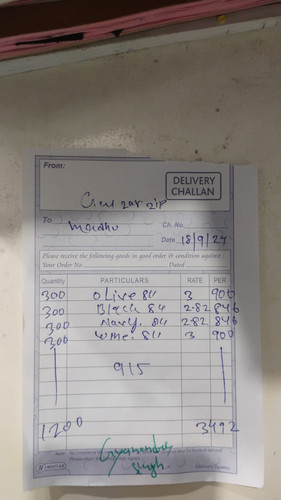 From:
DELIVERY
CHALLAN
zip
To Madhu
Ch. No.
Date 18/9/24
Please receive the following goods in good order & condition against
Your Order No. Dated
Quantity PARTICULARS RATE PER
300 Olive 84 3 900
300 Black 84 2.82 846
300 Navy. 84 2.82 846
300 Wine. 84 3 900
915
1200 3492
Gyanendra
Singh